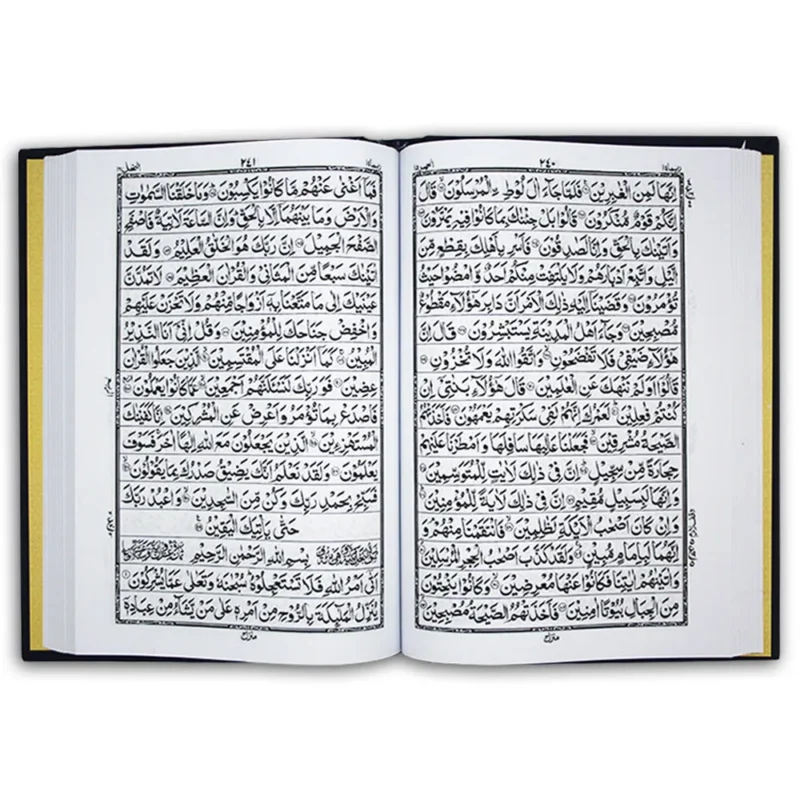 ربما ١٤ ٢٤٠ الحجر ١٥
اِنَّهَا لَمِنَ الْغٰبِرِيْنَ فَلَمَّا جَآءَ اٰلَ لُوْطِ ِۨالْمُرْسَلُوْنَ قَالَ
اِنَّكُمْ قَوْمٌ مُّنْكَرُوْنَ قَالُوْا بَلْ جِئْنٰكَ بِمَا كَانُوْا فِيْهِ يَمْتَرُوْنَ
وَاَتَيْنٰكَ بِالْحَقِّ وَاِنَّا لَصٰدِقُوْنَ فَاَسْرِ بِاَهْلِكَ بِقِطْعٍ مِّنَ
الَّيْلِ وَاتَّبِعْ اَدْبَارَهُمْ وَلَا يَلْتَفِتْ مِنْكُمْ اَحَدٌ وَّامْضُوْا حَيْثُ
تُؤْمَرُوْنَ وَقَضَيْنَآ اِلَيْهِ ذٰلِكَ الْاَمْرَ اَنَّ دَابِرَ هٰٓؤُلَآءِ مَقْطُوْعٌ
مُّصْبِحِيْنَ وَجَآءَ اَهْلُ الْمَدِيْنَةِ يَسْتَبْشِرُوْنَ قَالَ اِنَّ
هٰٓؤُلَآءِ ضَيْفِيْ فَلَا تَفْضَحُوْنِ وَاتَّقُوا اللّٰهَ وَلَا تُخْزُوْنِ
قَالُوْٓا اَوَلَمْ نَنْهَكَ عَنِ الْعٰلَمِيْنَ قَالَ هٰٓؤُلَآءِ بَنٰتِيْٓ اِنْ
كُنْتُمْ فٰعِلِيْنَ لَعَمْرُكَ اِنَّهُمْ لَفِيْ سَكْرَتِهِمْ يَعْمَهُوْنَ فَاَخَذَتْهُمُ
الصَّيْحَةُ مُشْرِقِيْنَ فَجَعَلْنَا عَالِيَهَا سَافِلَهَا وَاَمْطَرْنَا عَلَيْهِمْ
حِجَارَةً مِّنْ سِجِّيْلٍ اِنَّ فِيْ ذٰلِكَ لَاٰيٰتٍ لِّلْمُتَوَسِّمِيْنَ
وَاِنَّهَا لَبِسَبِيْلٍ مُّقِيْمٍ اِنَّ فِيْ ذٰلِكَ لَاٰيَةً لِّلْمُؤْمِنِيْنَ
وَاِنْ كَانَ اَصْحٰبُ الْاَيْكَةِ لَظٰلِمِيْنَ فَانْتَقَمْنَا مِنْهُمْ وَ
اِنَّهُمَا لَبِاِمَامٍ مُّبِيْنٍ وَلَقَدْ كَذَّبَ اَصْحٰبُ الْحِجْرِ الْمُرْسَلِيْنَ
وَاٰتَيْنٰهُمْ اٰيٰتِنَا فَكَانُوْا عَنْهَا مُعْرِضِيْنَ وَكَانُوْا يَنْحِتُوْنَ
مِنَ الْجِبَالِ بُيُوْتًا اٰمِنِيْنَ فَاَخَذَتْهُمُ الصَّيْحَةُ مُصْبِحِيْنَ
منزل ٣
ربما ١٤ ٢٤١ النحل ١٦
فَمَآ اَغْنٰى عَنْهُمْ مَّا كَانُوْا يَكْسِبُوْنَ وَمَا خَلَقْنَا السَّمٰوٰتِ
وَالْاَرْضَ وَمَا بَيْنَهُمَآ اِلَّا بِالْحَقِّ وَاِنَّ السَّاعَةَ لَاٰتِيَةٌ فَاصْفَحِ
الصَّفْحَ الْجَمِيْلَ اِنَّ رَبَّكَ هُوَ الْخَلّٰقُ الْعَلِيْمُ وَلَقَدْ
اٰتَيْنٰكَ سَبْعًا مِّنَ الْمَثَانِيْ وَالْقُرْاٰنَ الْعَظِيْمَ لَا تَمُدَّنَّ
عَيْنَيْكَ اِلٰى مَا مَتَّعْنَا بِهٖٓ اَزْوَاجًا مِّنْهُمْ وَلَا تَحْزَنْ عَلَيْهِمْ
وَاخْفِضْ جَنَاحَكَ لِلْمُؤْمِنِيْنَ وَقُلْ اِنِّيْٓ اَنَا النَّذِيْرُ
الْمُبِيْنُ كَمَآ اَنْزَلْنَا عَلَى الْمُقْتَسِمِيْنَ الَّذِيْنَ جَعَلُوا الْقُرْاٰنَ
عِضِيْنَ فَوَرَبِّكَ لَنَسْـَٔلَنَّهُمْ اَجْمَعِيْنَ عَمَّا كَانُوْا يَعْمَلُوْنَ
فَاصْدَعْ بِمَا تُؤْمَرُ وَاَعْرِضْ عَنِ الْمُشْرِكِيْنَ اِنَّا كَفَيْنٰكَ
الْمُسْتَهْزِءِيْنَ الَّذِيْنَ يَجْعَلُوْنَ مَعَ اللّٰهِ اِلٰهًا اٰخَرَ فَسَوْفَ
يَعْلَمُوْنَ وَلَقَدْ نَعْلَمُ اَنَّكَ يَضِيْقُ صَدْرُكَ بِمَا يَقُوْلُوْنَ
فَسَبِّحْ بِحَمْدِ رَبِّكَ وَكُنْ مِّنَ السّٰجِدِيْنَ وَاعْبُدْ رَبَّكَ
حَتّٰى يَاْتِيَكَ الْيَقِيْنُ
بِسْمِ اللّٰهِ الرَّحْمٰنِ الرَّحِيْمِ
اَتٰٓى اَمْرُ اللّٰهِ فَلَا تَسْتَعْجِلُوْهُ سُبْحٰنَهٗ وَتَعٰلٰى عَمَّا يُشْرِكُوْنَ
يُنَزِّلُ الْمَلٰٓئِكَةَ بِالرُّوْحِ مِنْ اَمْرِهٖ عَلٰى مَنْ يَّشَآءُ مِنْ عِبَادِهٖٓ
منزل ٣